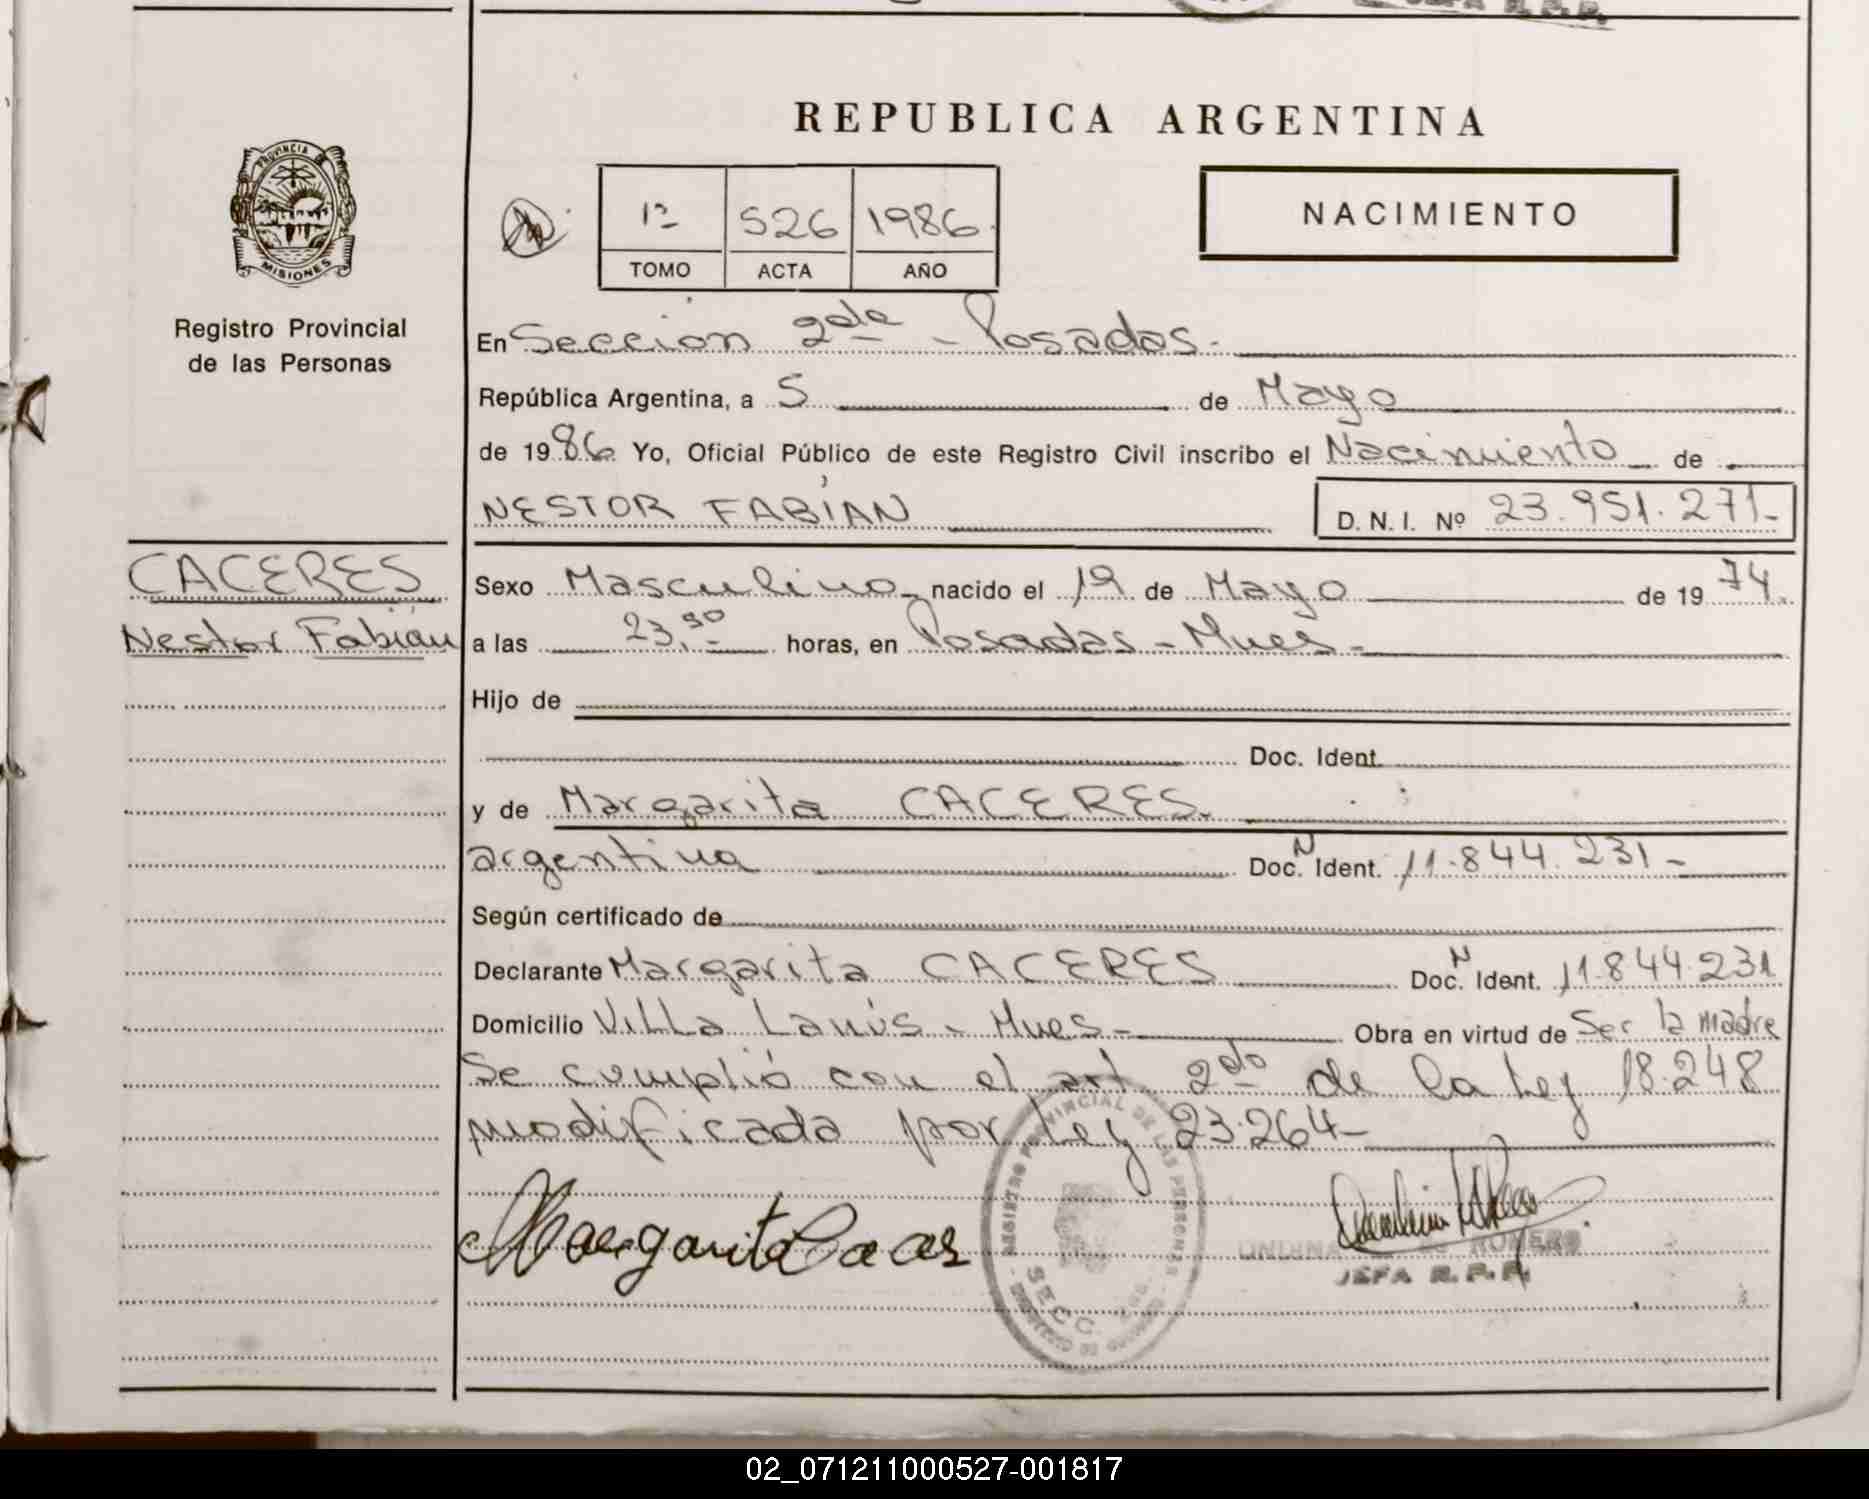 REPUBLICA ARGENTINA
PROVINCIA DE
MISIONES
Registro Provincial
de las Personas
1º 526 1986
TOMO ACTA AÑO
NACIMIENTO
En Sección 2da - Posadas.
República Argentina, a 5 de Mayo
de 1986 Yo, Oficial Público de este Registro Civil inscribo el Nacimiento de
NESTOR FABIÁN D. N. I. Nº 23.951.271-
CACERES
Nestor Fabián
Sexo Masculino nacido el 19 de Mayo de 1974.
a las 23,30 horas, en Posadas - Mnes -
Hijo de
Doc. Ident.
y de Margarita CACERES.
argentina Doc. N Ident. 11.844.231-
Según certificado de
Declarante Margarita CACERES Doc. N Ident. 11.844.231
Domicilio Villa Lanús - Mnes - Obra en virtud de Ser la madre
Se cumplió con el art 2do de la Ley 18.248
modificada por Ley 23.264-
REGISTRO PROVINCIAL DE LAS PERSONAS
SECC.
Margarita Caceres
ROMERO
JEFA R.P.P.
02_071211000527-001817